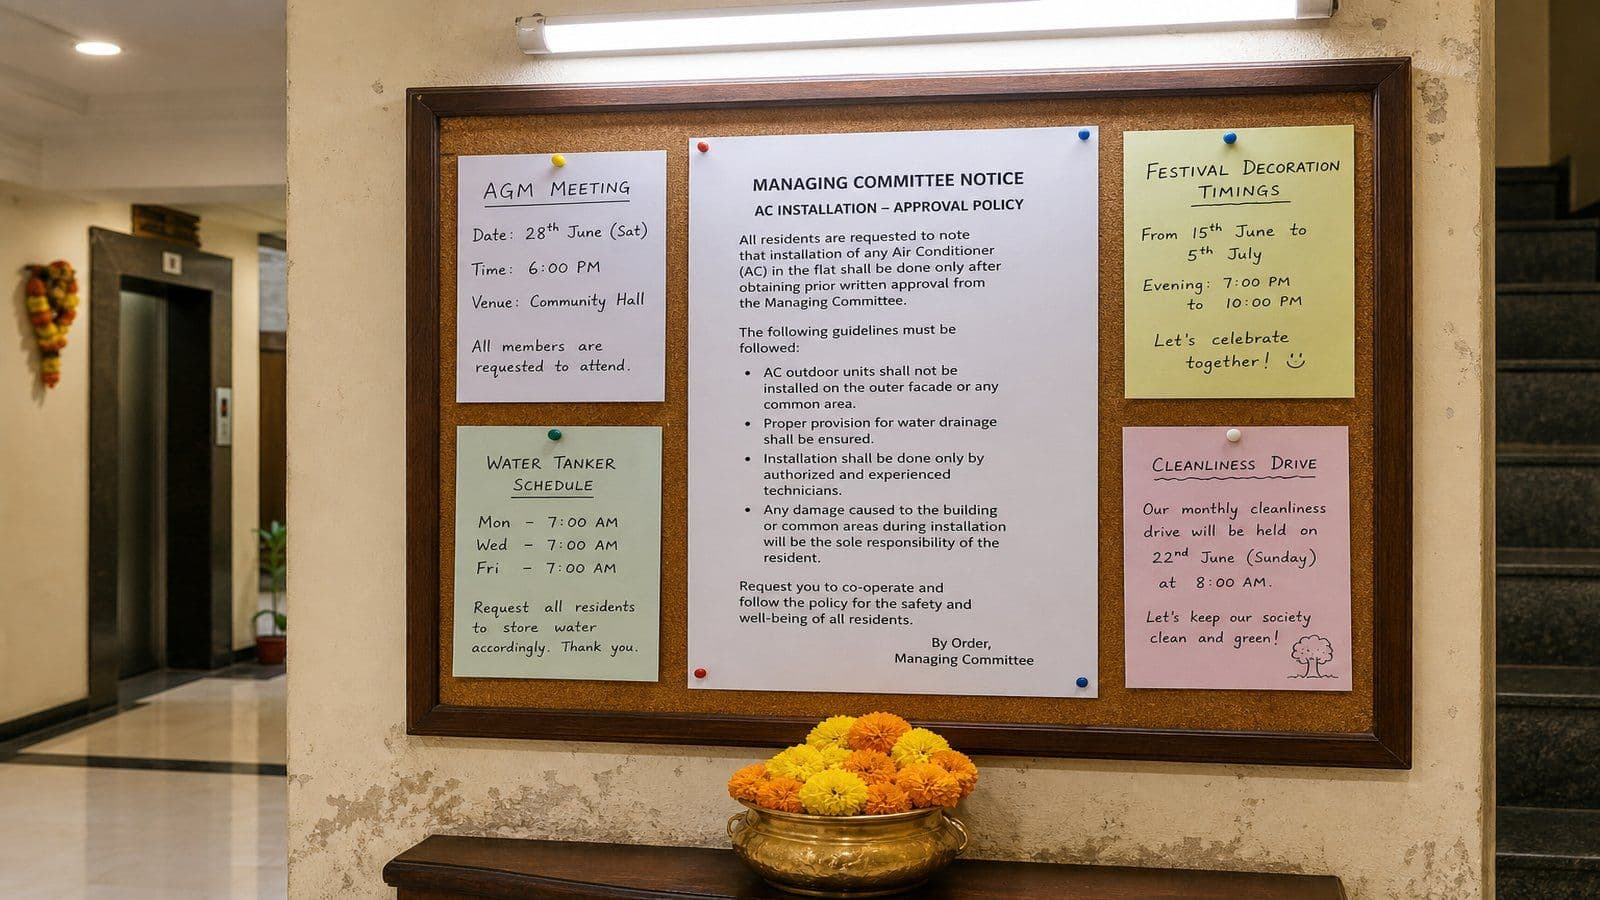 AGM MEETING
Date: 28th June (Sat)
Time: 6:00 PM
Venue: Community Hall
All members are
requested to attend.
WATER TANKER
SCHEDULE
Mon - 7:00 AM
Wed - 7:00 AM
Fri - 7:00 AM
Request all residents
to store water
accordingly. Thank you.
MANAGING COMMITTEE NOTICE
AC INSTALLATION – APPROVAL POLICY
All residents are requested to note
that installation of any Air Conditioner
(AC) in the flat shall be done only after
obtaining prior written approval from
the Managing Committee.
The following guidelines must be
followed:
• AC outdoor units shall not be
installed on the outer facade or any
common area.
• Proper provision for water drainage
shall be ensured.
• Installation shall be done only by
authorized and experienced
technicians.
• Any damage caused to the building
or common areas during installation
will be the sole responsibility of the
resident.
Request you to co-operate and
follow the policy for the safety and
well-being of all residents.
By Order,
Managing Committee
FESTIVAL DECORATION
TIMINGS
From 15th June to
5th July
Evening: 7:00 PM
to 10:00 PM
Let's celebrate
together!
CLEANLINESS DRIVE
Our monthly cleanliness
drive will be held on
22nd June (Sunday)
at 8:00 AM.
Let's keep our society
clean and green!